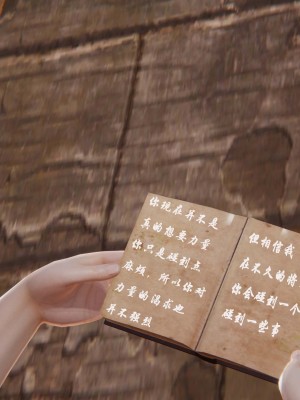 你现在并不是
真的想要力量
你只是碰到点
麻烦，所以你对
力量的渴求也
并不强烈
但相信我
在不久的将
你会碰到一个
碰到一些事